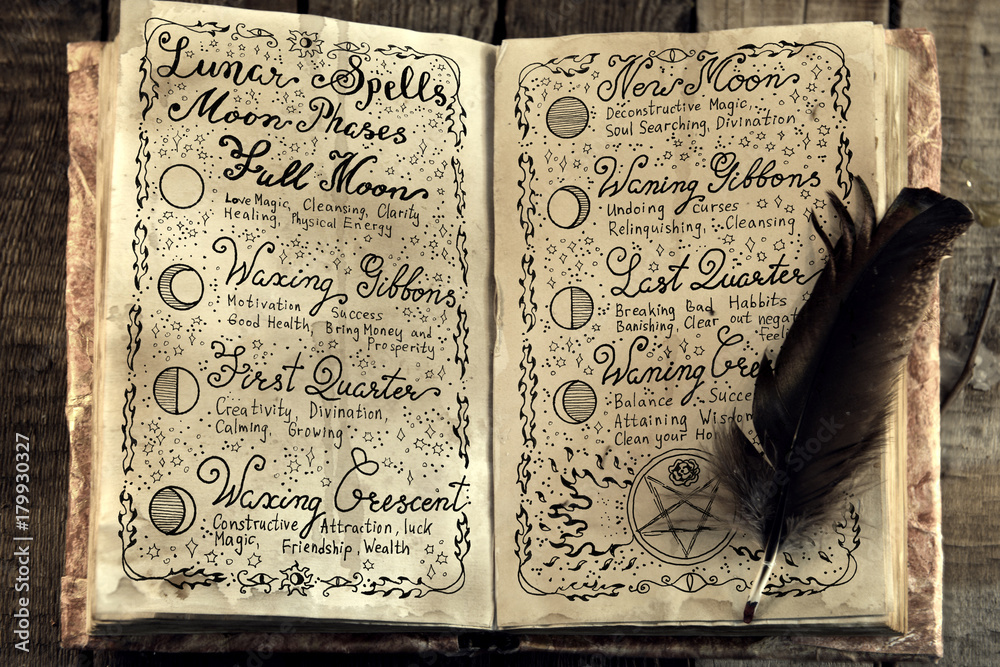 Lunar Spells
Moon Phases
Full Moon
Love Magic, Cleansing, Clarity
Healing, Physical Energy
Waxing Gibbons
Motivation Success
Good Health, Bring Money and
Prosperity
First Quarter
Creativity, Divination,
Calming, Growing
Waxing Crescent
Constructive Attraction, luck
Magic, Friendship, Wealth
New Moon
Deconstructive Magic,
Soul Searching, Divination
Waning Gibbons
Undoing curses
Relinquishing, Cleansing
Last Quarter
Breaking Bad Habits
Banishing, Clear out negat
feeli
Waning Cre
Balance Succe
Attaining Wisdom
Clean your Ho
Adobe Stock | #179930327
Adobe Stock